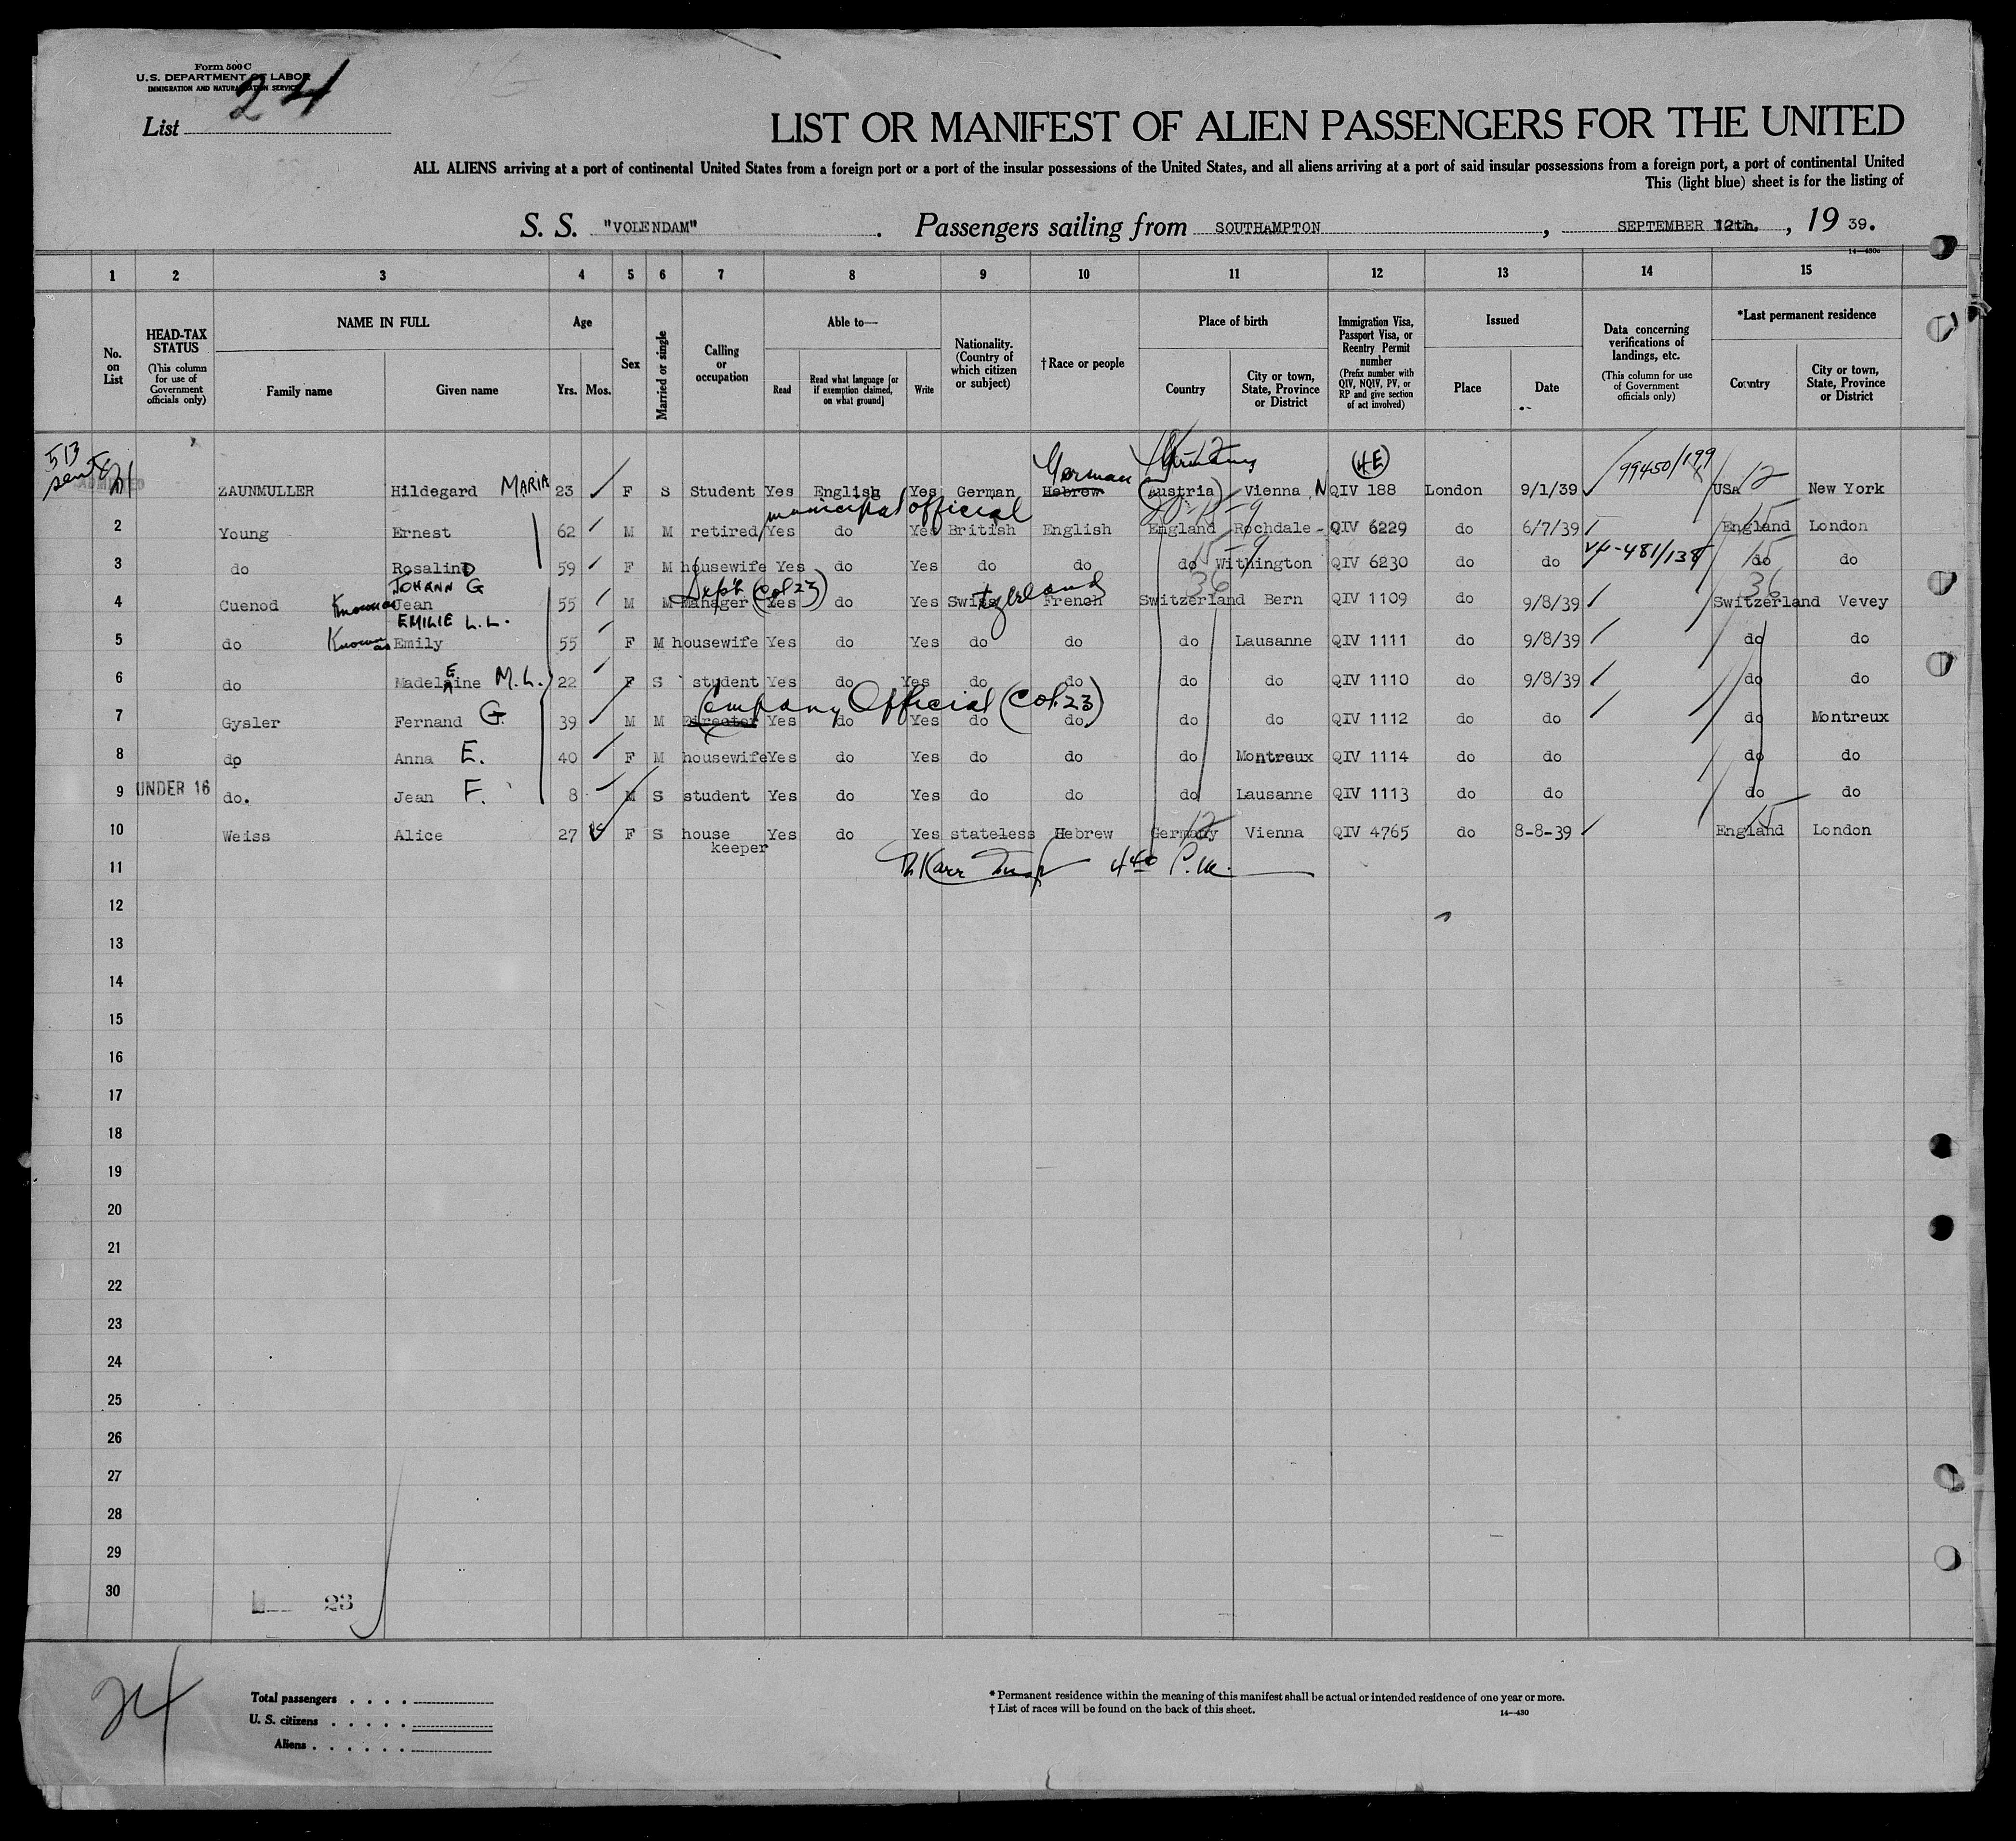 Form 500 C
U.S. DEPARTMENT OF LABOR
IMMIGRATION AND NATURALIZATION SERVICE
List 24
LIST OR MANIFEST OF ALIEN PASSENGERS FOR THE UNITED
ALL ALIENS arriving at a port of continental United States from a foreign port or a port of the insular possessions of the United States, and all aliens arriving at a port of said insular possessions from a foreign port, a port of continental United
This (light blue) sheet is for the listing of
S. S. "VOLENDAM" . Passengers sailing from SOUTHAMPTON , SEPTEMBER 12th. , 19 39.
14—430a
1 2 3 4 5 6 7 8 9 10 11 12 13 14 15
No. on List
HEAD-TAX STATUS (This column for use of Government officials only)
NAME IN FULL
Family name
Given name
Age
Yrs. Mos.
Sex
Married or single
Calling or occupation
Able to—
Read
Read what language [or if exemption claimed, on what ground]
Write
Nationality. (Country of which citizen or subject)
† Race or people
Place of birth
Country
City or town, State, Province or District
Immigration Visa, Passport Visa, or Reentry Permit number (Prefix number with QIV, NQIV, PV, or RP and give section of act involved)
Issued
Place
Date
Data concerning verifications of landings, etc. (This column for use of Government officials only)
*Last permanent residence
Country
City or town, State, Province or District
513
German Germany (4E) 99450/199 12
ADMITTED ZAUNMULLER Hildegard MARIA 23 F S Student Yes English Yes German Hebrew (Austria) Vienna NQIV 188 London 9/1/39 USA New York
municipal official
2 Young Ernest 62 M M retired Yes do Yes British English England Rochdale QIV 6229 do 6/7/39 England London
3 do RosalinD 59 F M housewife Yes do Yes do do do Withington QIV 6230 do do V4-481/138 do do
JOHANN G Dept. (Col 23) 36 36
4 Cuenod Known as Jean 55 M M Manager Yes do Yes Switzerland French Switzerland Bern QIV 1109 do 9/8/39 Switzerland Vevey
EMILIE L.L.
5 do Known as Emily 55 F M housewife Yes do Yes do do do Lausanne QIV 1111 do 9/8/39 do do
6 do MadelEine M.L. 22 F S student Yes do Yes do do do do QIV 1110 do 9/8/39 do do
Company Official (Col 23)
7 Gysler Fernand G 39 M M Director Yes do Yes do do do do QIV 1112 do do do Montreux
8 do Anna E. 40 F M housewife Yes do Yes do do do Montreux QIV 1114 do do do do
9 UNDER 16 do. Jean F. 8 M S student Yes do Yes do do do Lausanne QIV 1113 do do do do
10 Weiss Alice 27 F S house keeper Yes do Yes stateless Hebrew Germany 12 Vienna QIV 4765 do 8-8-39 England 15 London
11 Karr 4 40 P.M.
12
13
14
15
16
17
18
19
20
21
22
23
24
25
26
27
28
29
30
23
24
Total passengers
U. S. citizens
Aliens
* Permanent residence within the meaning of this manifest shall be actual or intended residence of one year or more.
† List of races will be found on the back of this sheet.
14—430